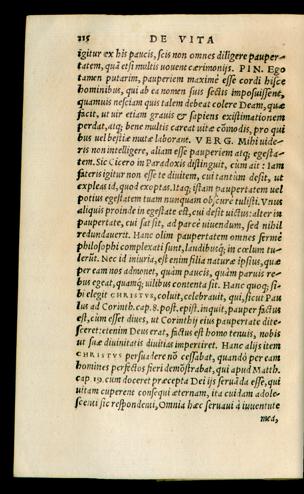 215 DE VITA
igitur ex his paucis, scis non omnes diligere pauper-
tatem, quã etsi multis vouent cærimonijs. PIN. Ego
tamen putarim, pauperiem maximè esse cordi hisce
hominibus, qui ab ea nomen suis sectis imposuissent,
quamuis nesciam quis talem debeat colere Deam, quæ
facit, ut uir etiam grauis & sapiens existimationem
perdat, atq; bene multis careat uitæ cõmodis, pro qui
bus uel bestiæ mutæ laborant. VERG. Mihi uide-
ris non intelligere, aliam esse pauperiem atq; egesta-
tem. Sic Cicero in Paradoxis distinguit, cùm ait: Iam
fateris igitur non esse te diuitem, cui tantùm desit, ut
expleas id, quod exoptas. Itaq; istam paupertatem uel
potius egestatem tuam nunquam obscurè tulisti. Vnus
aliquis proinde in egestate est, cui desit uictus: alter in
paupertate, cui satsit, ad parcè uiuendum, sed nihil
redundauerit. Hanc olim paupertatem omnes fermè
philosophi complexati sunt, laudibusq; in cœlum tu-
lerũt. Nec id iniuria, est enim filia naturæ ipsius, quæ
per eam nos admonet, quàm paucis, quàm paruis re-
bus egeat, quamq; uilibus contenta sit. Hanc quoq; si-
bi elegit CHRISTVS, coluit, celebrauit, qui, sicut Pau
lus ad Corinth. cap. 8. post. epist. inquit, pauper factus
est, cùm esset diues, ut Corinthij eius paupertate dite-
sceret: etenim Deus erat, factus est homo tenuis, nobis
ut suæ diuinitatis diuitias impertiret. Hanc alijs item
CHRISTVS persuadere nõ cessabat, quandò per eam
homines perfectos fieri demõstrabat, qui apud Matth.
cap. 19. cum doceret præcepta Dei ijs seruãda esse, qui
uitam cuperent consequi æternam, ita cuidam adole-
scenti sic respondenti, Omnia hæc seruaui à iuuentute
mea,